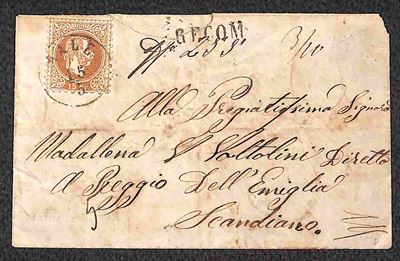 RECOM
No 255
3/60
Alla Pregiatissima Signora
Maddallena Voltolini Diretta
A Reggio Dell'Emiglia
5
Scandiano.